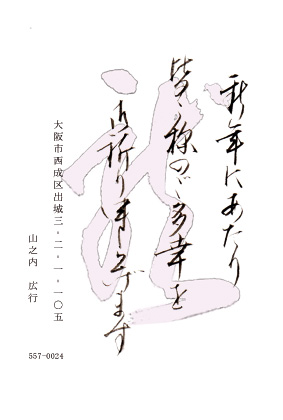 新年にあたり
皆々様のご多幸を
お祈り申し上げます
大阪市西成区出城三-二-一-一〇五
山之内 広行
557-0024